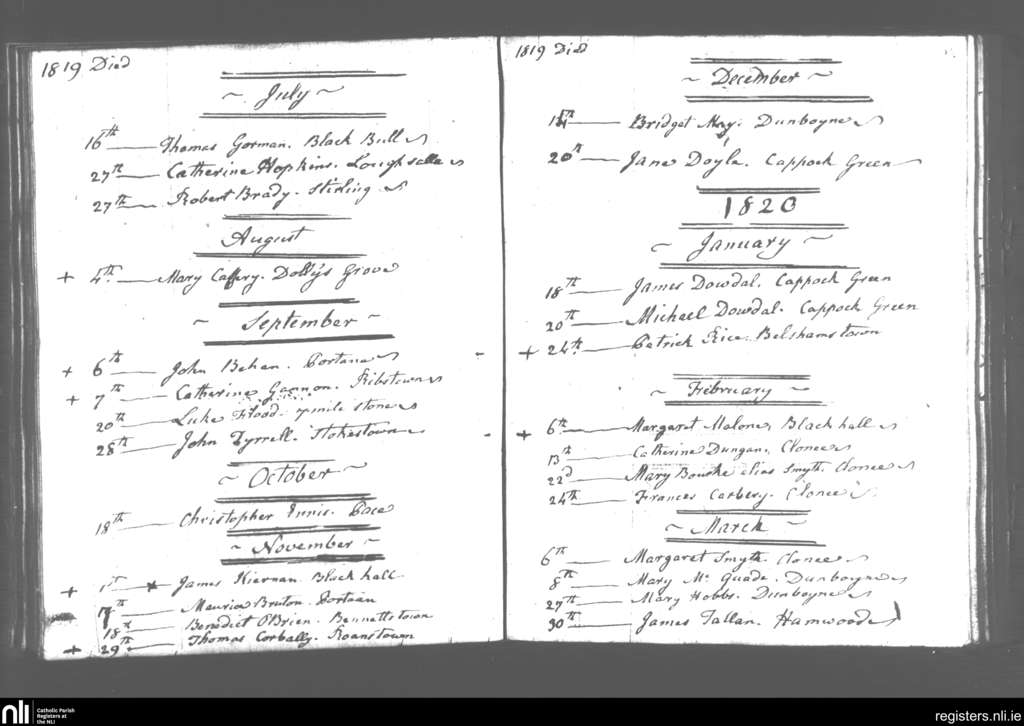 1819 Died
~ July ~
16th Thomas Gorman. Black Bull
27th Catherine Hopkins. Loughsallee
27th Robert Brady. Stirling
August
+ 4th Mary Caffery. Dolly's Grove
~ September ~
+ 6th John Behan. Portane
+ 7th Catherine Gannon. Ribstown
20th Luke Flood. 7 mile stone
28th John Tyrrell. Stokestown
~ October ~
18th Christopher Innis. Pace
~ November ~
+ 1st James Kiernan. Black hall
7th Maurice Bruton. Portan
18th Benedict O'Brien. Bennettstown
+ 29th Thomas Corbally. Roanstown
1819 Died
~ December ~
Bridget May. Dunboyne
20th Jane Doyle. Cappock Green
1820
~ January ~
18th James Dowdal. Cappock Green
20th Michael Dowdal. Cappock Green
+ 24th Patrick Rice. Belshamstown
~ February ~
+ 6th Margaret Malone, Black hall
13th Catherine Dungan, Clonee
22d Mary Bourke elias Smyth. Clonee
24th Frances Carbery. Clonee
~ March ~
6th Margaret Smyth. Clonee
8th Mary Mc Quade. Dunboyne
27th Mary Hobbs. Dunboyne
30th James Tallan. Hamwood
nli Catholic Parish
Registers at
the NLI
registers.nli.ie